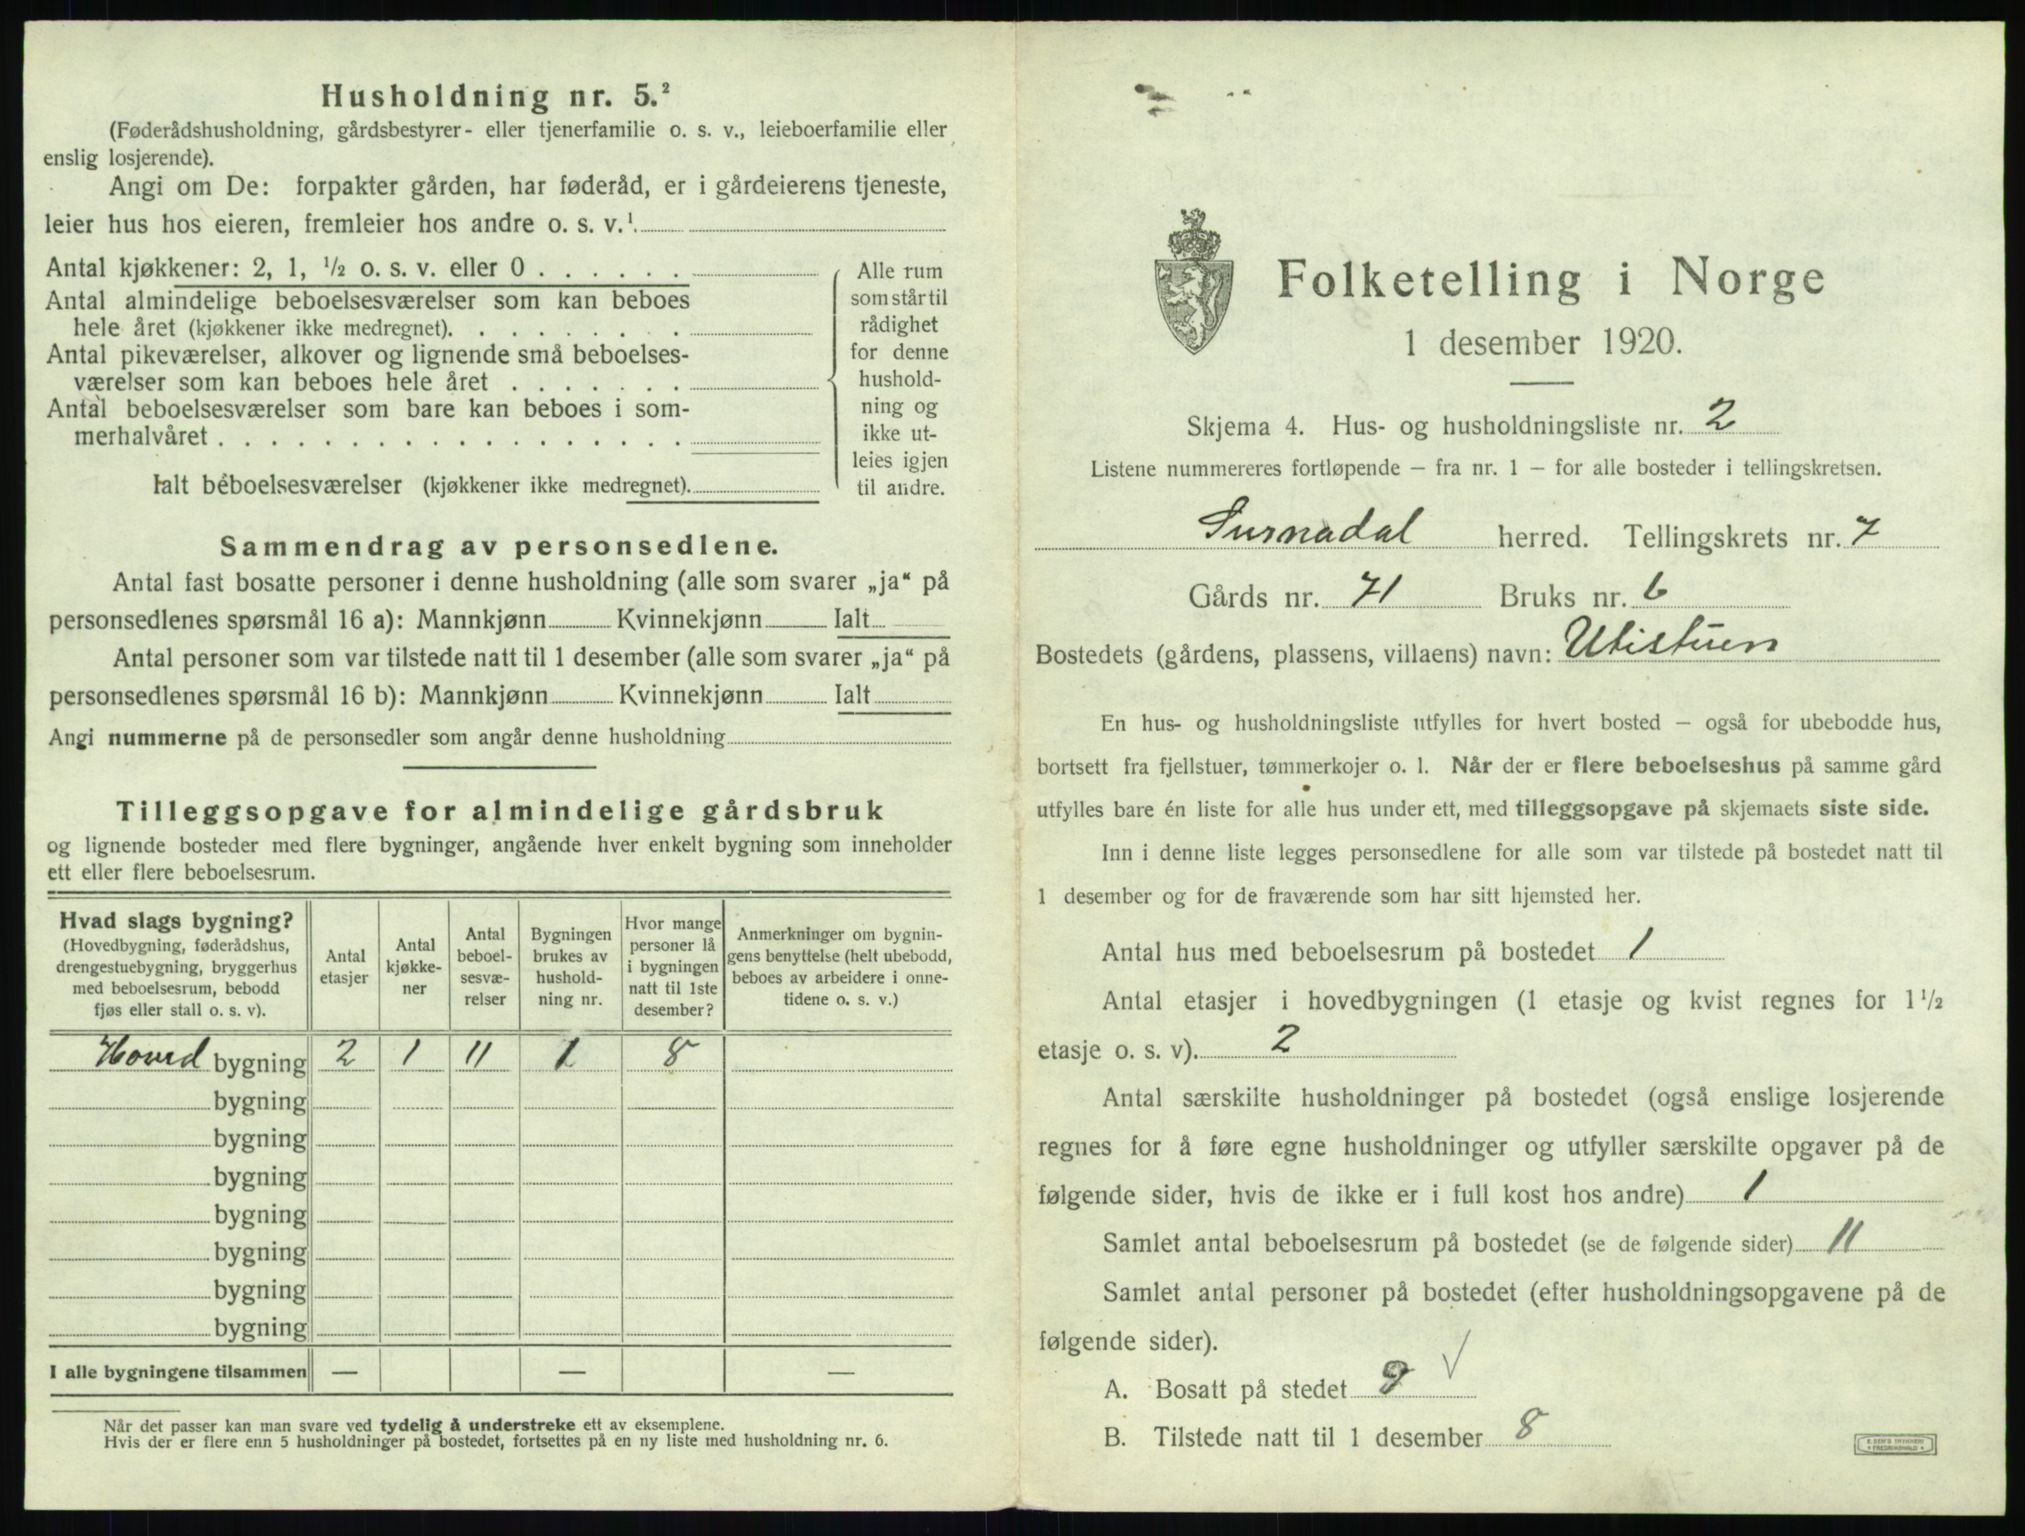 Husholdning nr. 5.²
(Føderådshusholdning, gårdsbestyrer- eller tjenerfamilie o. s. v., leieboerfamilie eller
enslig losjerende).
Angi om De: forpakter gården, har føderåd, er i gårdeierens tjeneste,
leier hus hos eieren, fremleier hos andre o. s. v.¹
Antal kjøkkener: 2, 1, ½ o. s. v. eller 0 . . . . . .
Antal almindelige beboelsesværelser som kan beboes
hele året (kjøkkener ikke medregnet). . . . . . . . .
Antal pikeværelser, alkover og lignende små beboelses-
værelser som kan beboes hele året . . . . . . .
Antal beboelsesværelser som bare kan beboes i som-
merhalvåret . . . . . . . . . . . . . . . . . .
Ialt beboelsesværelser (kjøkkener ikke medregnet).
Alle rum
som står til
rådighet
for denne
hushold-
ning og
ikke ut-
leies igjen
til andre.
Sammendrag av personsedlene.
Antal fast bosatte personer i denne husholdning (alle som svarer „ja“ på
personsedlenes spørsmål 16 a): Mannkjønn Kvinnekjønn Ialt
Antal personer som var tilstede natt til 1 desember (alle som svarer „ja“ på
personsedlenes spørsmål 16 b): Mannkjønn Kvinnekjønn Ialt
Angi nummerne på de personsedler som angår denne husholdning
Tilleggsopgave for almindelige gårdsbruk
og lignende bosteder med flere bygninger, angående hver enkelt bygning som inneholder
ett eller flere beboelsesrum.
Hvad slags bygning?
(Hovedbygning, føderådshus,
drengestuebygning, bryggerhus
med beboelsesrum, bebodd
fjøs eller stall o. s. v).
Antal
etasjer
Antal
kjøkke-
ner
Antal
beboel-
sesvæ-
relser
Bygningen
brukes av
hushold-
ning nr.
Hvor mange
personer lå
i bygningen
natt til 1ste
desember?
Anmerkninger om bygnin-
gens benyttelse (helt ubebodd,
beboes av arbeidere i onne-
tidene o. s. v.)
Hoved bygning 2 1 11 1 8
bygning
bygning
bygning
bygning
bygning
bygning
bygning
I alle bygningene tilsammen — — —
Når det passer kan man svare ved tydelig å understreke ett av eksemplene.
Hvis der er flere enn 5 husholdninger på bostedet, fortsettes på en ny liste med husholdning nr. 6.
Folketelling i Norge
1 desember 1920.
Skjema 4. Hus- og husholdningsliste nr. 2
Listene nummereres fortløpende — fra nr. 1 — for alle bosteder i tellingskretsen.
Surnadal herred. Tellingskrets nr. 7
Gårds nr. 71 Bruks nr. 6
Bostedets (gårdens, plassens, villaens) navn: Utistuen
En hus- og husholdningsliste utfylles for hvert bosted — også for ubebodde hus,
bortsett fra fjellstuer, tømmerkojer o. l. Når der er flere beboelseshus på samme gård
utfylles bare én liste for alle hus under ett, med tilleggsopgave på skjemaets siste side.
Inn i denne liste legges personsedlene for alle som var tilstede på bostedet natt til
1 desember og for de fraværende som har sitt hjemsted her.
Antal hus med beboelsesrum på bostedet 1
Antal etasjer i hovedbygningen (1 etasje og kvist regnes for 1½
etasje o. s. v). 2
Antal særskilte husholdninger på bostedet (også enslige losjerende
regnes for å føre egne husholdninger og utfyller særskilte opgaver på de
følgende sider, hvis de ikke er i full kost hos andre) 1
Samlet antal beboelsesrum på bostedet (se de følgende sider) 11
Samlet antal personer på bostedet (efter husholdningsopgavene på de
følgende sider).
A. Bosatt på stedet 9 √
B. Tilstede natt til 1 desember 8